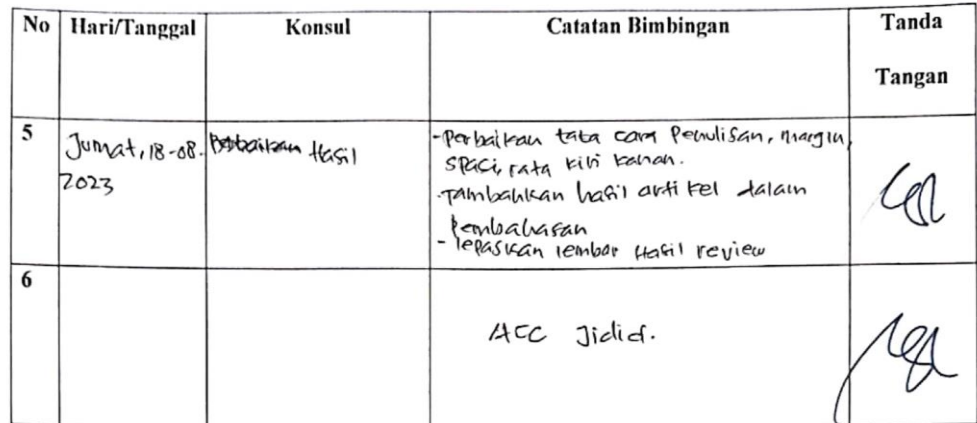 No Hari/Tanggal Konsul Catatan Bimbingan Tanda
Tangan
5 Jumat, 18-08- Perbaikan Hasil - Perbaikan tata cara Penulisan, margin,
2023 spasi, rata kiri kanan.
- Tambahkan hasil artikel dalam
pembahasan
- lepaskan lembar Hasil review
6
ACC Jidid.